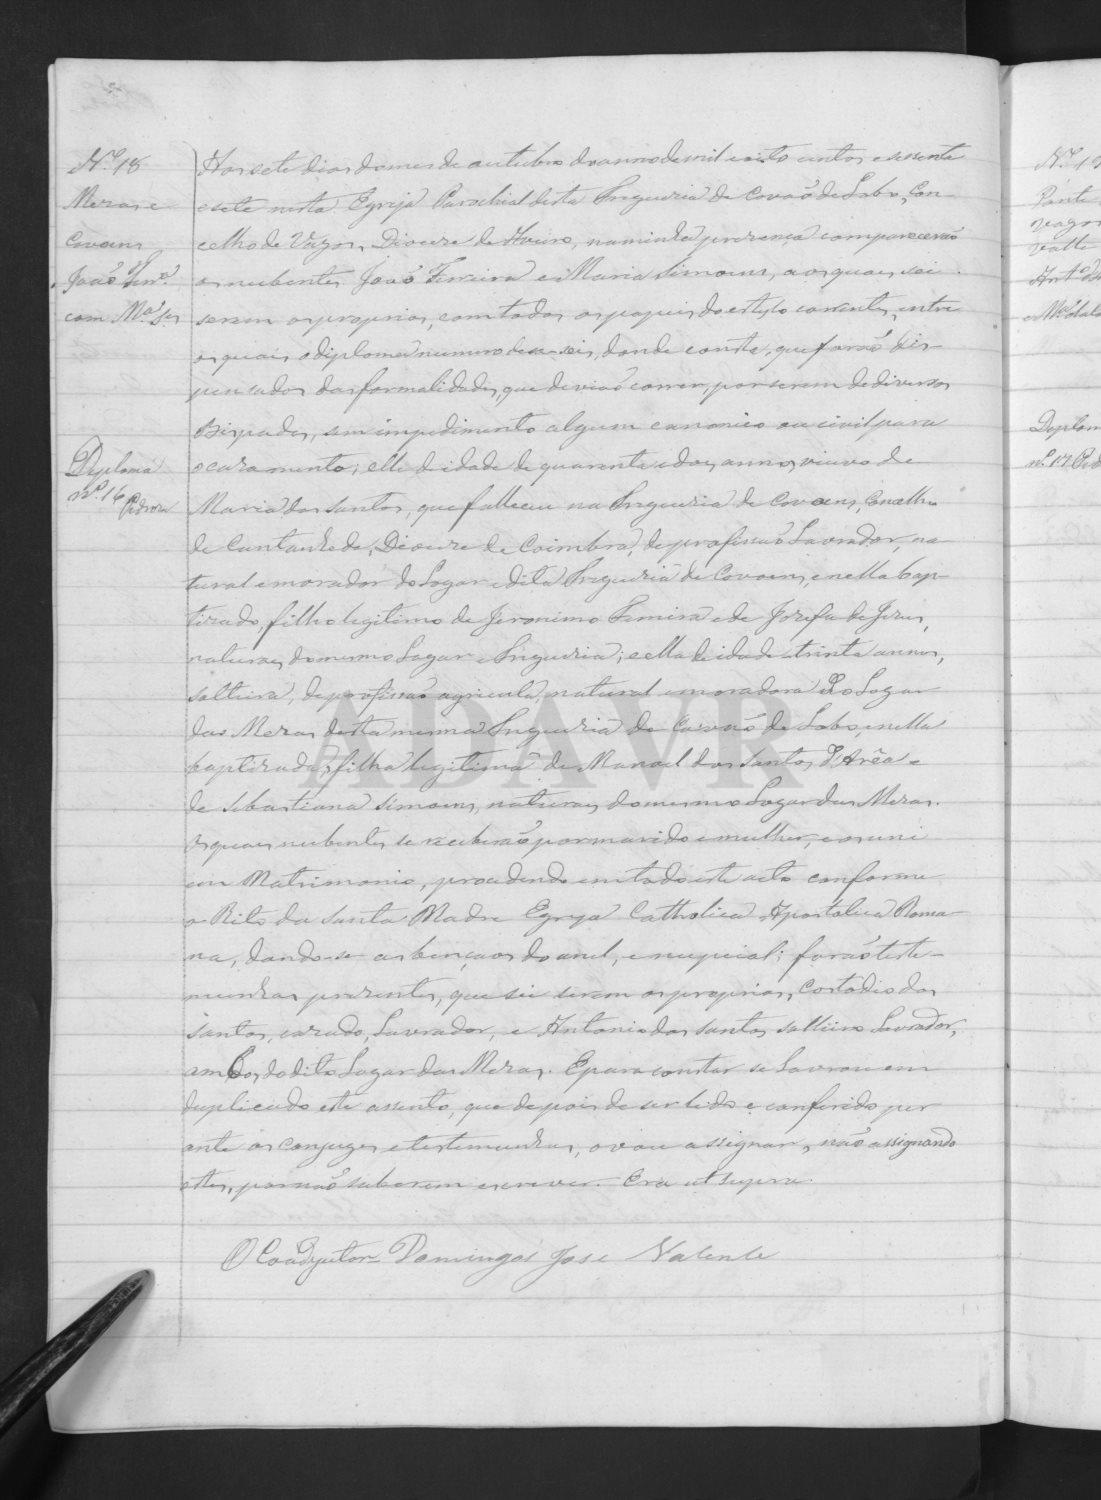 Nº 18
Mezas e
Covoens
João Ferrª
com Mª Ses
Diploma
nº 16 Pedroza
Aos sete dias do mes de outubro do anno de mil e oito centos e sessenta
e sete nesta Egreja Parochial desta Freguezia de Covão de Lobo, Con-
celho de Vagos, Diocese de Aveiro, na minha prezença comparecerão
os nubentes João Ferreira e Maria Simoens, a os quaes sei
serem os proprios, com todos os papeis do estylo correntes, entre
os quais o diploma numero deza-seis, donde consta, que farão dis-
pensados das formalidades, que devião correr, por serem de diversos
Bispados, sem impedimento algum canonico ou civil para
o cazamento; elle de idade de quarenta e dous annos, viuvo de
Maria dos Santos, que falleceu na Freguezia de Covoens, Concelho
de Cantanhede, Diocese de Coimbra, de profissão Lavrador, na-
tural e morador do Logar e dita Freguezia de Covoens, e nella bap-
tizado, filho legitimo de Jeronimo Ferreira e de Jozefa de Jezus,
naturaes do mesmo Logar e Freguezia; e ella de idade trinta annos,
solteira, de profissão agricula, natural e moradora do Logar
das Mezas desta mesma Freguezia de Covão de Lobo, e nella
baptizada, filha legitima de Manoel dos Santos d'Arêa e
de Sebastiana Simoens, naturaes do mesmo Logar das Mezas.
Os quaes nubentes se receberão por marido e mulher, e os uni
em Matrimonio, procedendo em todo este acto conforme
o Rito da Santa Madre Egreja Catholica Apostolica Roma-
na, dando-se as bençaos do anel, e nupcial; forão teste-
munhas prezentes, que sei serem os proprios, Costodio dos
Santos, cazado, Lavrador, e Antonio dos Santos solteiro Lavrador,
ambos, do dito Logar das Mezas. E para constar se lavrou em
duplicado este assento, que depois de ser lido e conferido per
ante os conjuges e testemunhas, o vou assignar, não assignando
estes, por não saberem escrever. Era ut supra.
O Coadjutor Domingos Jose Valente
ADAVR
Nº 19
Ponte
Vagos
Valle
Antº d
Diplom
nº 17 Ped